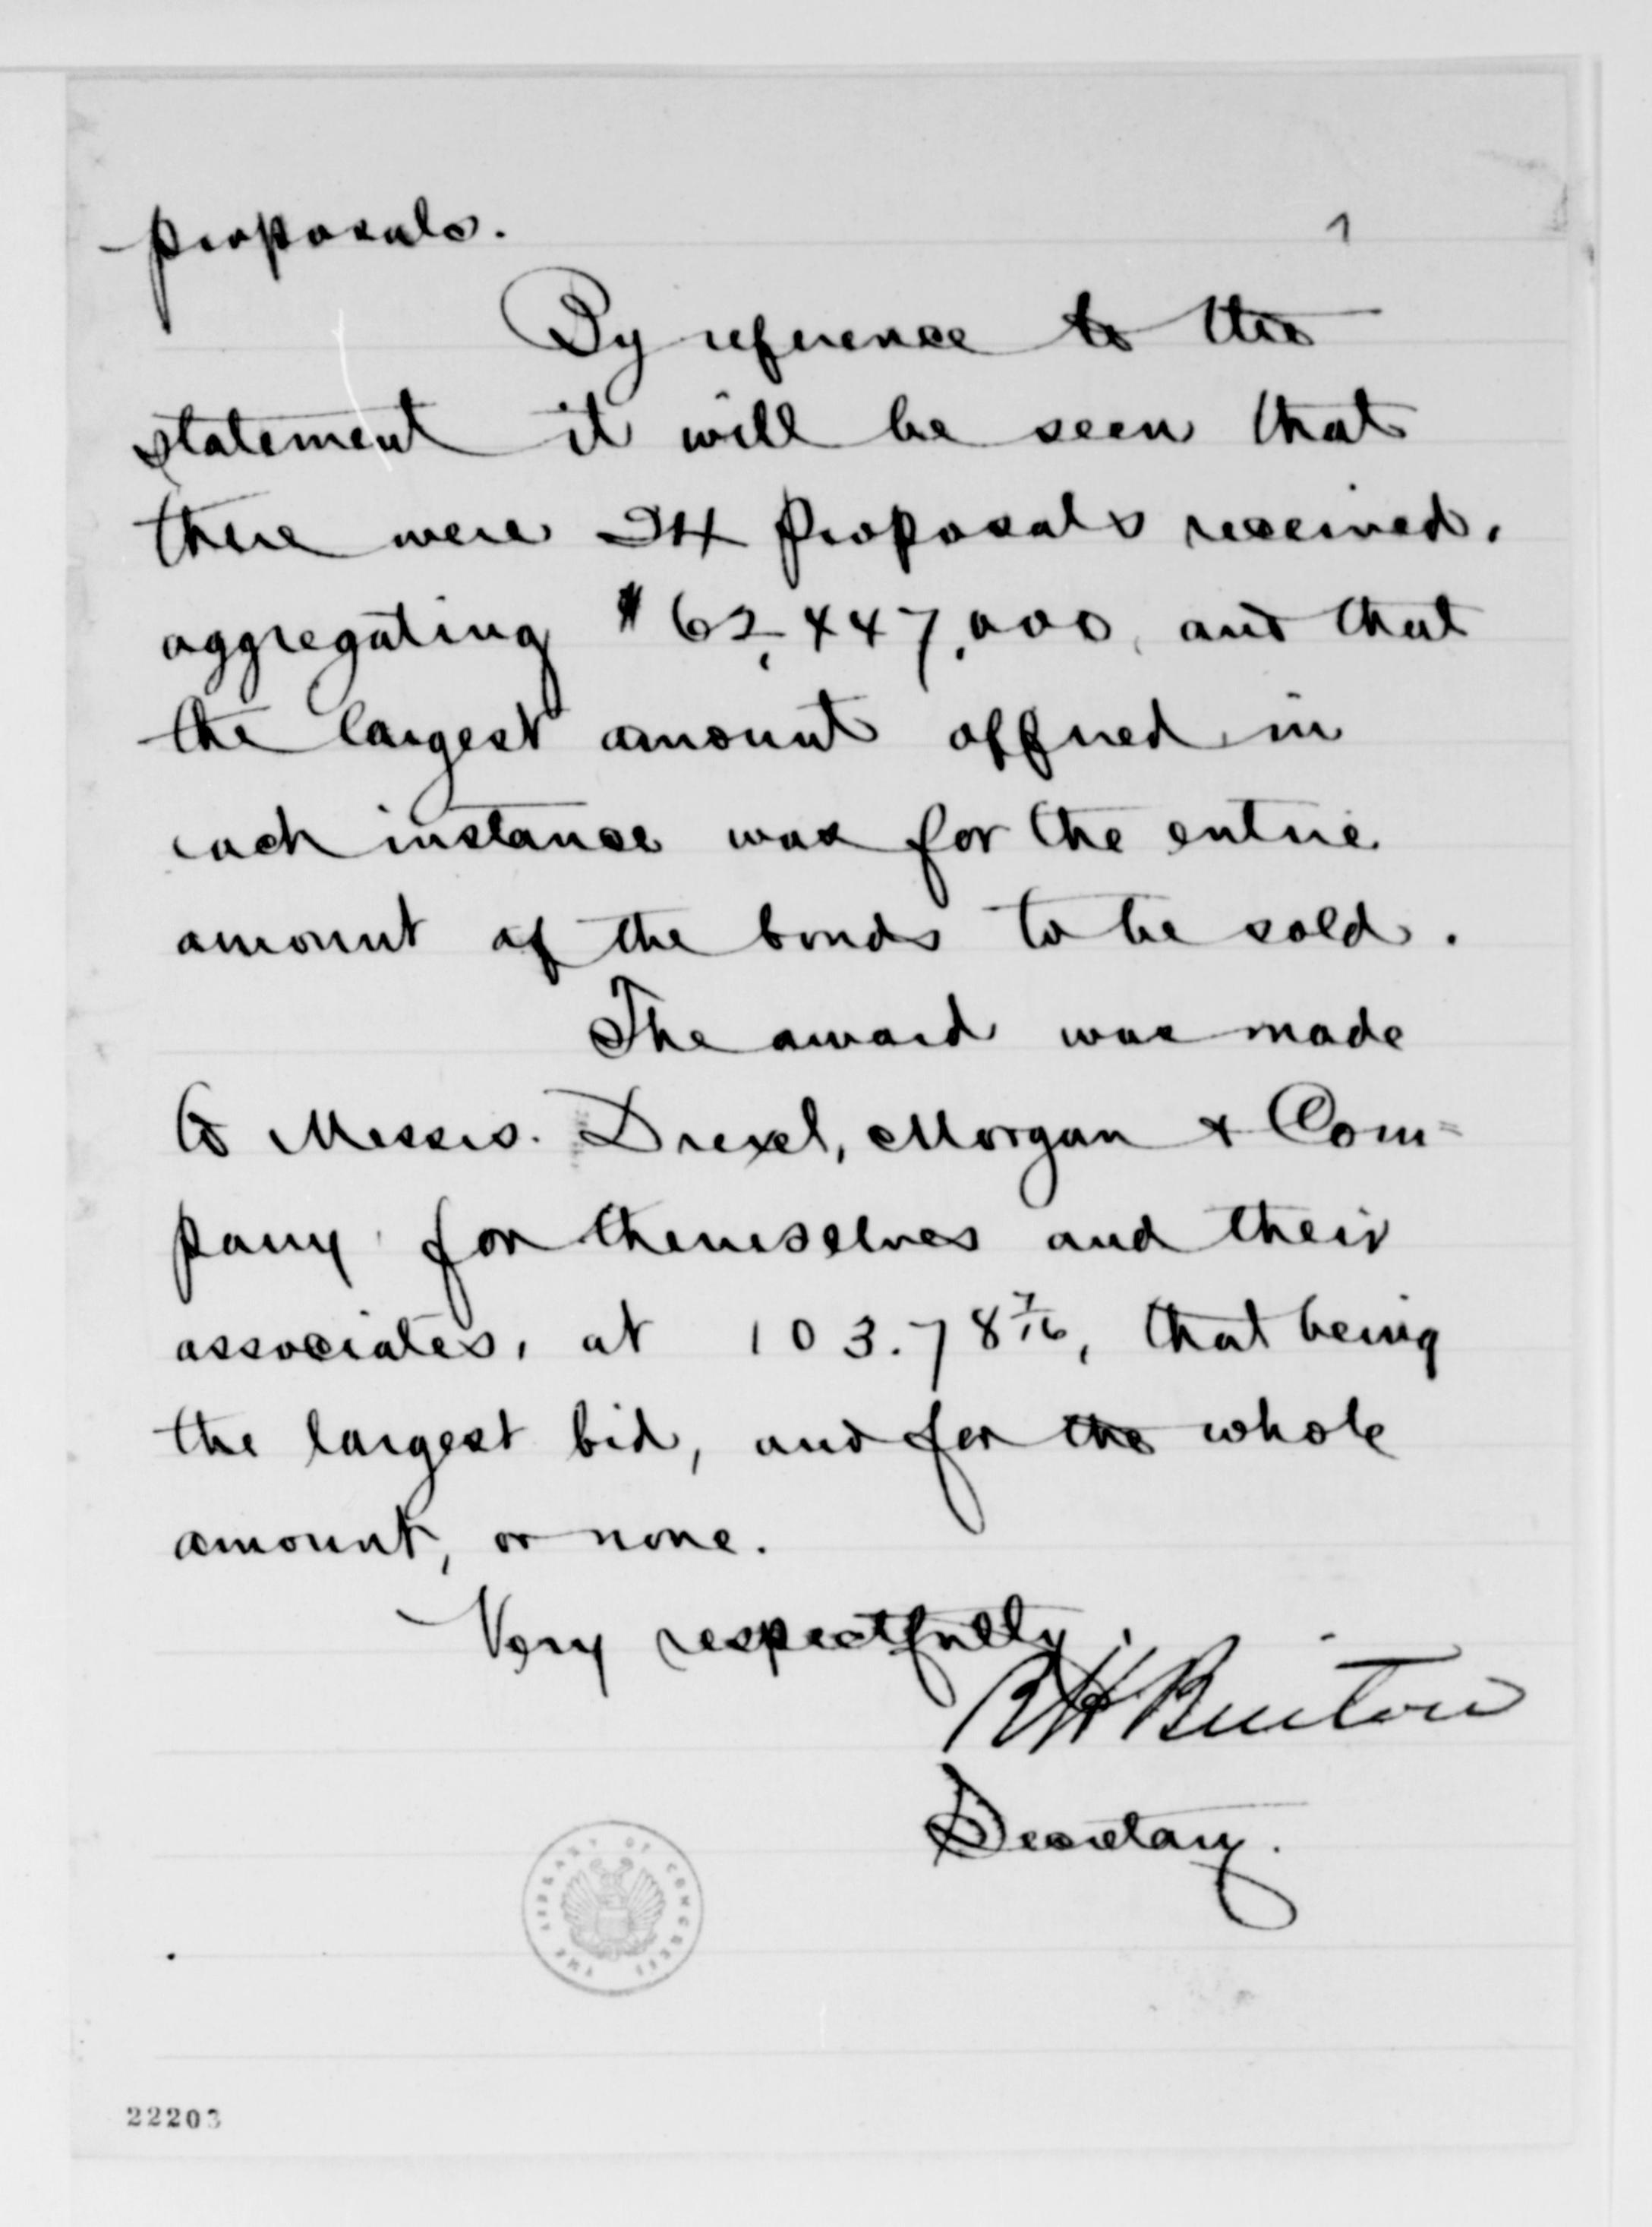 proposals.
By reference to the
statement it will be seen that
there were 24 proposals received,
aggregating $62,447,000, and that
the largest amount offered in
each instance was for the entire
amount of the bonds to be sold.
The award was made
to Messrs. Drexel, Morgan & Com=
pany for themselves and their
associates, at 103.78 7/16, that being
the largest bid, and for the whole
amount, or none.
Very respectfully,
Secretary.
THE LIBRARY OF CONGRESS
22203